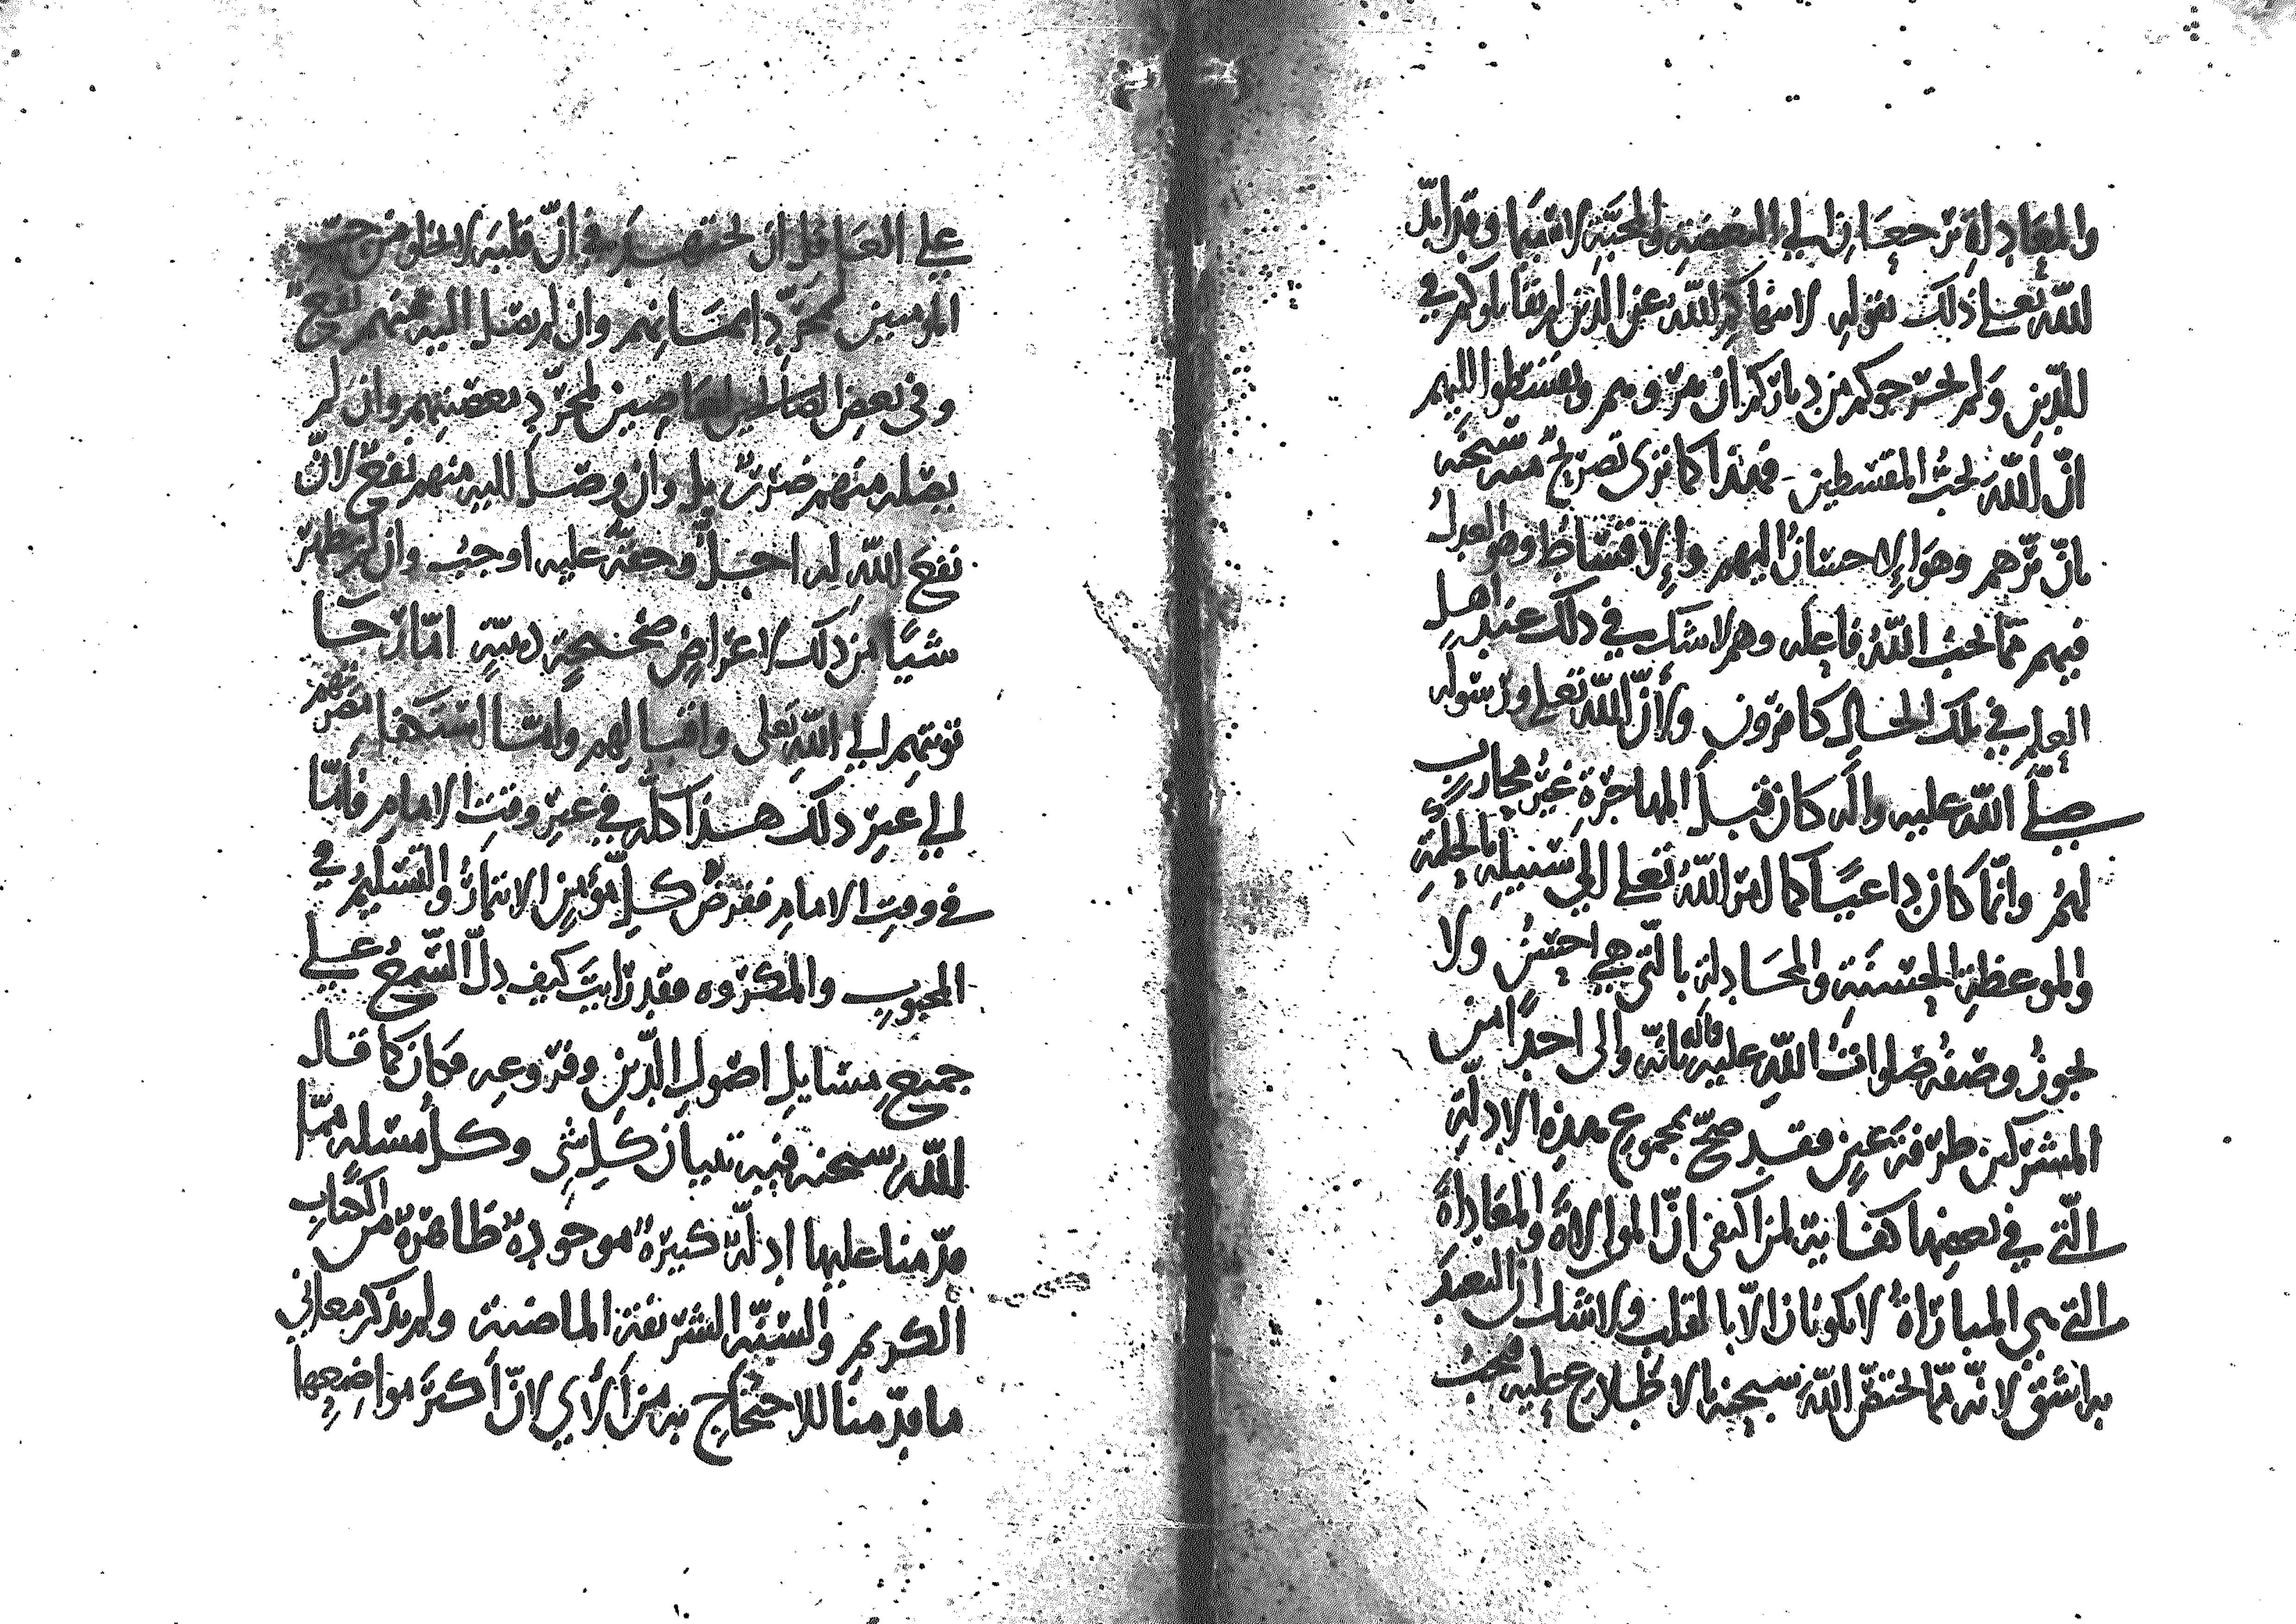 والمعادلة ترجعان الى البغضة والمحبة لا تنبهما وقد ابد
الله تعلى ذلك بقوله لا ينهاكم الله عن الذين لم يقاتلوكم في
الدين ولم يخرجوكم من دياركم ان تبروهم وتقسطوا اليهم
انّ الله يحب المقسطين فهذا كما ترى تصريح منه سبحنه
بانّ برّهم وهو الإحسان اليهم والإقساط وهو العدل
فيهم ممّا يحب الله فاعله وهم لا شك في ذلك عند اهل
العلم في تلك الحال كافرون ولأنّ الله تعلى ورسوله
صلى الله عليه واله كان قبل المهاجرة غير محارب
لهم وانّما كان داعيًا كما امر الله تعلى الى سبيله بالحكمة
والموعظة الحسنة والمجادلة بالتي هي احسن ولا
يجوز وصفه صلوات الله عليه واله بانّه والى احدًا من
المشركين طرفة عين فقد صحّ بمجموع هذه الادلّة
الّتي في بعضها كفاية لمن اكتفى انّ الموالاة والمعاداة
التي هي المباراة لا يكونان الّا بالقلب ولا شك ان البعد
به اشقّ لانّه ممّا يختصّ الله سبحنه الاطلاع عليه فيجب
على العاقل ان يجتهد في انّ قلبه لا يخلو من حبّ
المؤمنين لمجرّد ايمانهم وان لم يصل اليه منهم نفع
وفي بعض الظالمين العاصين لمجرّد معصيتهم وان لم
يصله منهم ضرر بل وان وصل اليه منهم نفع لانّ
نفع الله له اجلّ وحقه عليه اوجب وان لم يظهر
شيًا من ذلك لاغراض صحيحة دينية امّا رجا
توبتهم الى الله تعلى واقبالهم وامّا استكفاء شرّهم
الى غير ذلك هذا كلّه في غير وقت الامام فامّا
في وقت الامام ففرض كلّ مؤمن الائتمار والتسليم في
المحبوب والمكروه فقد رايت كيف دلّ السمع على
جميع مسايل اصول الدّين وفروعه فكان كما قال
الله سبحنه فيه تبيان كل شي وكل مسله ممّا
قدّمنا عليها ادلّة كثيرة موجودة ظاهرة من الكتاب
الكريم والسنّة الشريفة الماضية ولم نذكر معاني
ما قدّمنا للاحتجاج به من الأي لانّ أكثر مواضعها